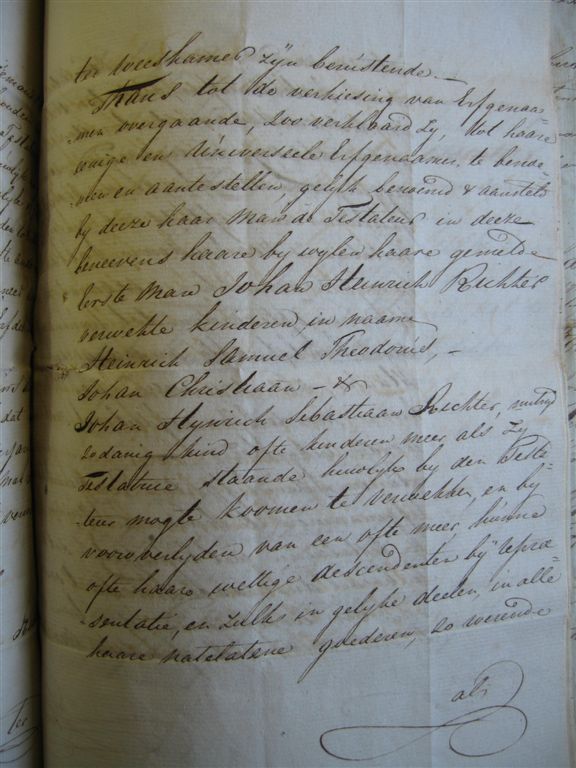 ter weeskamer zijn berustende.—
Thans tot de verkiesing van Erfgenaa=
=men overgaande, zoo verklaard Zy, tot haare
eenige en Universeele Erfgenaamen te benoe=
=men en aantestellen, gelijk benoemd & aansteld
by deeze haar Man de Testateur in deeze
beneevens haare by wylen haare gemelde
Eerste Man Johan Heinrich Richter
verwekte kinderen, in naame
Heinrich Samuel Theodorus, -
Johan Christiaan - &
Johan Hynrich Sebastiaan Richter, mitsg
zodanig kind ofte kinderen meer als Zy
Testatrice staande huwelyk by den Testa=
teur mogte koomen te verwekken, en by
vooroverlyden van een ofte meer hunne
ofte haare wettige descendenten by repræ=
=sentatie, en zulks in gelyke deelen, in alle
haare natelatene goederen, zo roerende
als